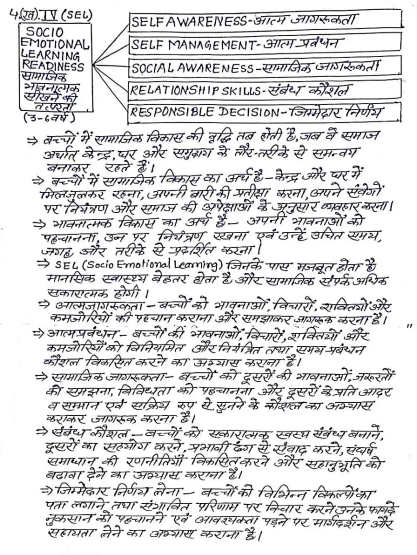 4.(ख). IV (SEL)
SOCIO
EMOTIONAL
LEARNING
READINESS
सामाजिक
भावनात्मक
सीखने की
तत्परता
(3-6वर्ष)
SELF AWARENESS-आत्म जागरूकता
SELF MANAGEMENT-आत्म प्रबंधन
SOCIAL AWARENESS-सामाजिक जागरूकता
RELATIONSHIP SKILLS-संबंध कौशल
RESPONSIBLE DECISION-जिम्मेदार निर्णय
⇒ बच्चों में सामाजिक विकास की वृद्धि तब होती है, जब वे समाज
अर्थात केन्द्र, घर और समुदाय के तौर-तरीके से समन्वय
बनाकर रहते हैं।
⇒ बच्चों में सामाजिक विकास का अर्थ है - केन्द्र और घर में
मिलजुलकर रहना, अपनी बारी की प्रतीक्षा करना, अपने संवेगों
पर नियंत्रण और समाज की अपेक्षाओं के अनुसार व्यवहार करना।
⇒ भावनात्मक विकास का अर्थ है - अपनी भावनाओं को
पहचानना, उन पर नियंत्रण रखना एवं उन्हें उचित समय,
जगह और तरीके से प्रदर्शित करना।
⇒ SEL (Socio Emotional Learning) जिनके पास मजबूत होता है
मानसिक स्वास्थ्य बेहतर होता है और सामाजिक संपर्क अधिक
सकारात्मक होगी।
⇒ आत्मजागरूकता - बच्चों को भावनाओं, विचारों, शक्तियों और
कमजोरियों की पहचान कराना और समझाकर जागरूक करना है।
⇒ आत्मप्रबंधन - बच्चों की भावनाओं, विचारों, शक्तियों और
कमजोरियों को विनियमित और नियंत्रित तथा समय प्रबंधन
कौशल विकसित करने का अभ्यास कराना है।
⇒ सामाजिक जागरूकता - बच्चों को दूसरों की भावनाओं, जरूरतों
को समझना, विविधता को पहचानना और दूसरों के प्रति आदर
व सम्मान एवं सक्रिय रूप से सुनने के कौशल का अभ्यास
कराकर जागरूक करना है।
⇒ संबंध कौशल - बच्चों को सकारात्मक स्वस्थ संबंध बनाने,
दूसरों का सहयोग करने, प्रभावी ढंग से संवाद करने, संघर्ष
समाधान की रणनीतियाँ विकसित करने और सहानुभूति को
बढ़ावा देने का अभ्यास कराना है।
⇒ जिम्मेदार निर्णय लेना - बच्चों को विभिन्न विकल्पों का
पता लगाने तथा संभावित परिणाम पर विचार करने उनके फायदे
नुकसान को पहचानने एवं आवश्यकता पड़ने पर मार्गदर्शन और
सहायता लेने का अभ्यास कराना है।